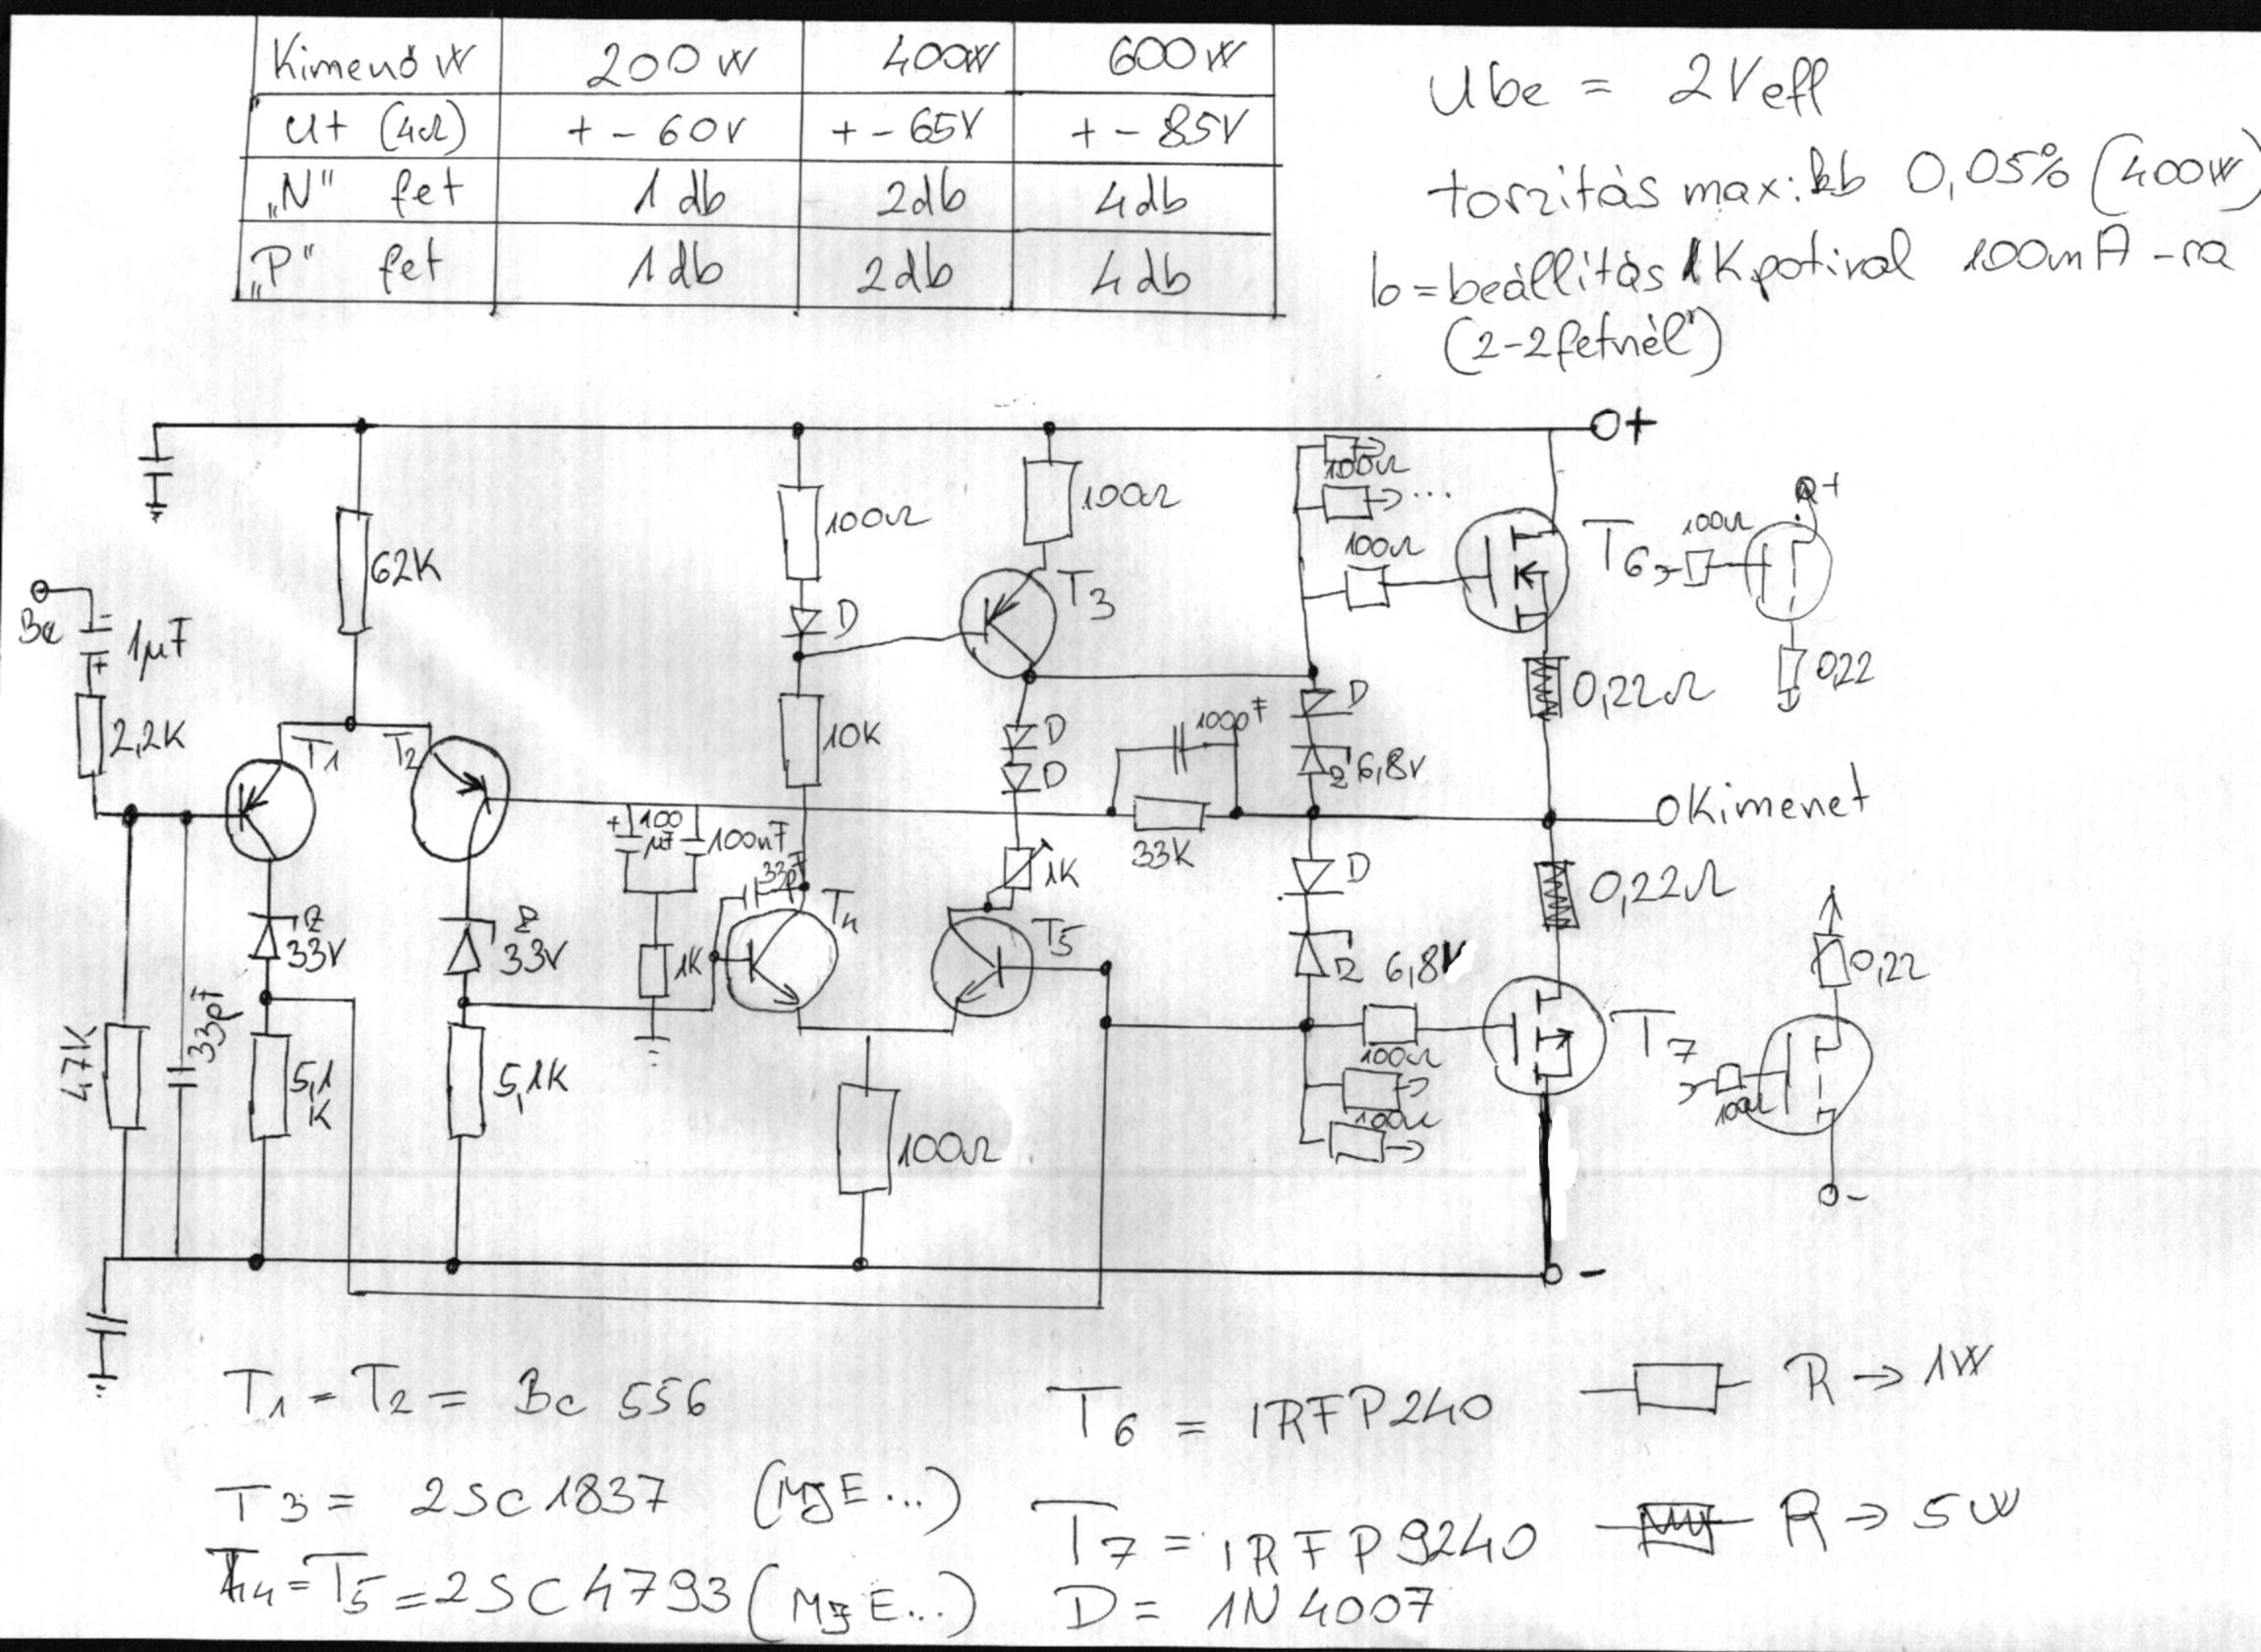 Kimenő W 200 W 400W 600 W
Ut (4Ω) + - 60V + - 65V + - 85V
„N" fet 1 db 2db 4db
„P" fet 1db 2db 4db
Ube = 2Veff
torzitás max: kb 0,05% (400W)
Io = beállítás 1K potival 100mA -ra
(2-2fetnél")
+
100Ω
...
100Ω
100Ω
100Ω
T6
100Ω
+
62K
D
T3
Be
1µF
+
0,22Ω
0,22
2,2K
T1
T2
10K
D
D
100pF
D
Z 6,8V
Kimenet
+
100
µF
100nF
33K
33pF
1K
D
0,22Ω
Z
33V
Z
33V
1K
T4
T5
Z 6,8V
0,22
47K
33pF
5,1
K
5,1K
100Ω
100Ω
100Ω
T7
100Ω
-
-
T1 = T2 = Bc 556
T6 = IRFP240
R → 1W
T3 = 2SC1837 (MJE...)
T7 = IRFP9240
R → 5W
T4 = T5 = 2SC4793 (MJE...)
D = 1N4007